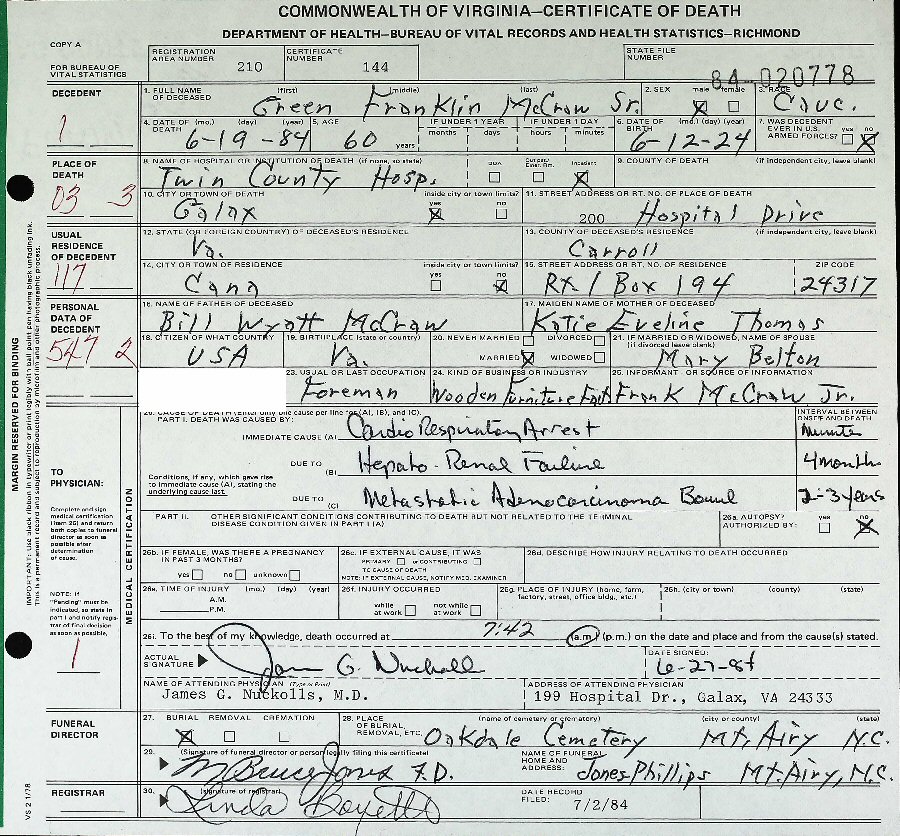 COMMONWEALTH OF VIRGINIA—CERTIFICATE OF DEATH
DEPARTMENT OF HEALTH—BUREAU OF VITAL RECORDS AND HEALTH STATISTICS—RICHMOND
COPY A
FOR BUREAU OF VITAL STATISTICS
REGISTRATION AREA NUMBER 210
CERTIFICATE NUMBER 144
STATE FILE NUMBER 84-020778
DECEDENT
1
1. FULL NAME OF DECEASED (first) (middle) (last)
Green Franklin McCraw Sr.
2. SEX male female
3. RACE Cauc.
4. DATE OF DEATH (mo.) (day) (year) 6-19-84
5. AGE 60 years
IF UNDER 1 YEAR months days
IF UNDER 1 DAY hours minutes
6. DATE OF BIRTH (mo.) (day) (year) 6-12-24
7. WAS DECEDENT EVER IN U.S. ARMED FORCES? yes no
PLACE OF DEATH
03 3
8. NAME OF HOSPITAL OR INSTITUTION OF DEATH (if none, so state)
Twin County Hosp.
DOA Inpatient
9. COUNTY OF DEATH (if independent city, leave blank)
10. CITY OR TOWN OF DEATH Galax
inside city or town limits? yes no
11. STREET ADDRESS OR RT. NO. OF PLACE OF DEATH
200 Hospital Drive
USUAL RESIDENCE OF DECEDENT
117
12. STATE (OR FOREIGN COUNTRY) OF DECEASED'S RESIDENCE
Va.
13. COUNTY OF DECEASED'S RESIDENCE (if independent city, leave blank)
Carroll
14. CITY OR TOWN OF RESIDENCE Cana
inside city or town limits? yes no
15. STREET ADDRESS OR RT. NO. OF RESIDENCE
Rt 1 Box 194
ZIP CODE 24317
PERSONAL DATA OF DECEDENT
547 2
16. NAME OF FATHER OF DECEASED
Bill Wyatt McCraw
17. MAIDEN NAME OF MOTHER OF DECEASED
Katie Eveline Thomas
18. CITIZEN OF WHAT COUNTRY USA
19. BIRTHPLACE (state or country) Va.
20. NEVER MARRIED DIVORCED
MARRIED WIDOWED
21. IF MARRIED OR WIDOWED, NAME OF SPOUSE (if divorced leave blank)
Mary Belton
23. USUAL OR LAST OCCUPATION Foreman
24. KIND OF BUSINESS OR INDUSTRY Wooden Furniture
25. INFORMANT OR SOURCE OF INFORMATION
Frank McCraw Jr.
TO PHYSICIAN:
Complete and sign medical certification (item 26) and return both copies to funeral director as soon as possible after determination of cause.
NOTE: If "Pending" must be indicated, so state in part I and notify registrar of final decision as soon as possible.
1
MEDICAL CERTIFICATION
26. CAUSE OF DEATH (Enter only one cause per line for (A), (B), and (C).
PART I. DEATH WAS CAUSED BY:
INTERVAL BETWEEN ONSET AND DEATH
IMMEDIATE CAUSE (A) Cardio Respiratory Arrest Minutes
DUE TO (B) Hepato-Renal Failure 4 months
Conditions, if any, which gave rise to immediate cause (A), stating the underlying cause last.
DUE TO (C) Metastatic Adenocarcinoma Bowel 2-3 years
PART II. OTHER SIGNIFICANT CONDITIONS CONTRIBUTING TO DEATH BUT NOT RELATED TO THE TERMINAL DISEASE CONDITION GIVEN IN PART I (A)
26a. AUTOPSY? AUTHORIZED BY: yes no
26b. IF FEMALE, WAS THERE A PREGNANCY IN PAST 3 MONTHS?
yes no unknown
26c. IF EXTERNAL CAUSE, IT WAS
PRIMARY or CONTRIBUTING
TO CAUSE OF DEATH
NOTE: IF EXTERNAL CAUSE, NOTIFY MED. EXAMINER
26d. DESCRIBE HOW INJURY RELATING TO DEATH OCCURRED
26e. TIME OF INJURY (mo.) (day) (year)
A.M.
P.M.
26f. INJURY OCCURRED
while at work not while at work
26g. PLACE OF INJURY (home, farm, factory, street, office bldg., etc.)
26h. (city or town) (county) (state)
26i. To the best of my knowledge, death occurred at 7:42 (a.m.) (p.m.) on the date and place and from the cause(s) stated.
ACTUAL SIGNATURE James G. Nuckolls
DATE SIGNED: 6-27-84
NAME OF ATTENDING PHYSICIAN (Type or Print)
James G. Nuckolls, M.D.
ADDRESS OF ATTENDING PHYSICIAN
199 Hospital Dr., Galax, VA 24333
FUNERAL DIRECTOR
27. BURIAL REMOVAL CREMATION
28. PLACE OF BURIAL, REMOVAL, ETC. (name of cemetery or crematory) (city or county) (state)
Oakdale Cemetery Mt. Airy N.C.
29. (Signature of funeral director or person legally filing this certificate)
M Bruce Jones F.D.
NAME OF FUNERAL HOME AND ADDRESS: Jones Phillips Mt. Airy, N.C.
REGISTRAR
30. (signature of registrar)
Linda
DATE RECORD FILED: 7/2/84
VS 2 1/78
MARGIN RESERVED FOR BINDING
IMPORTANT: Use black ribbon in typewriter or print legibly with ball point pen having black unfading ink.
This is a permanent record and subject to reproduction by microfilm and other photographic process.